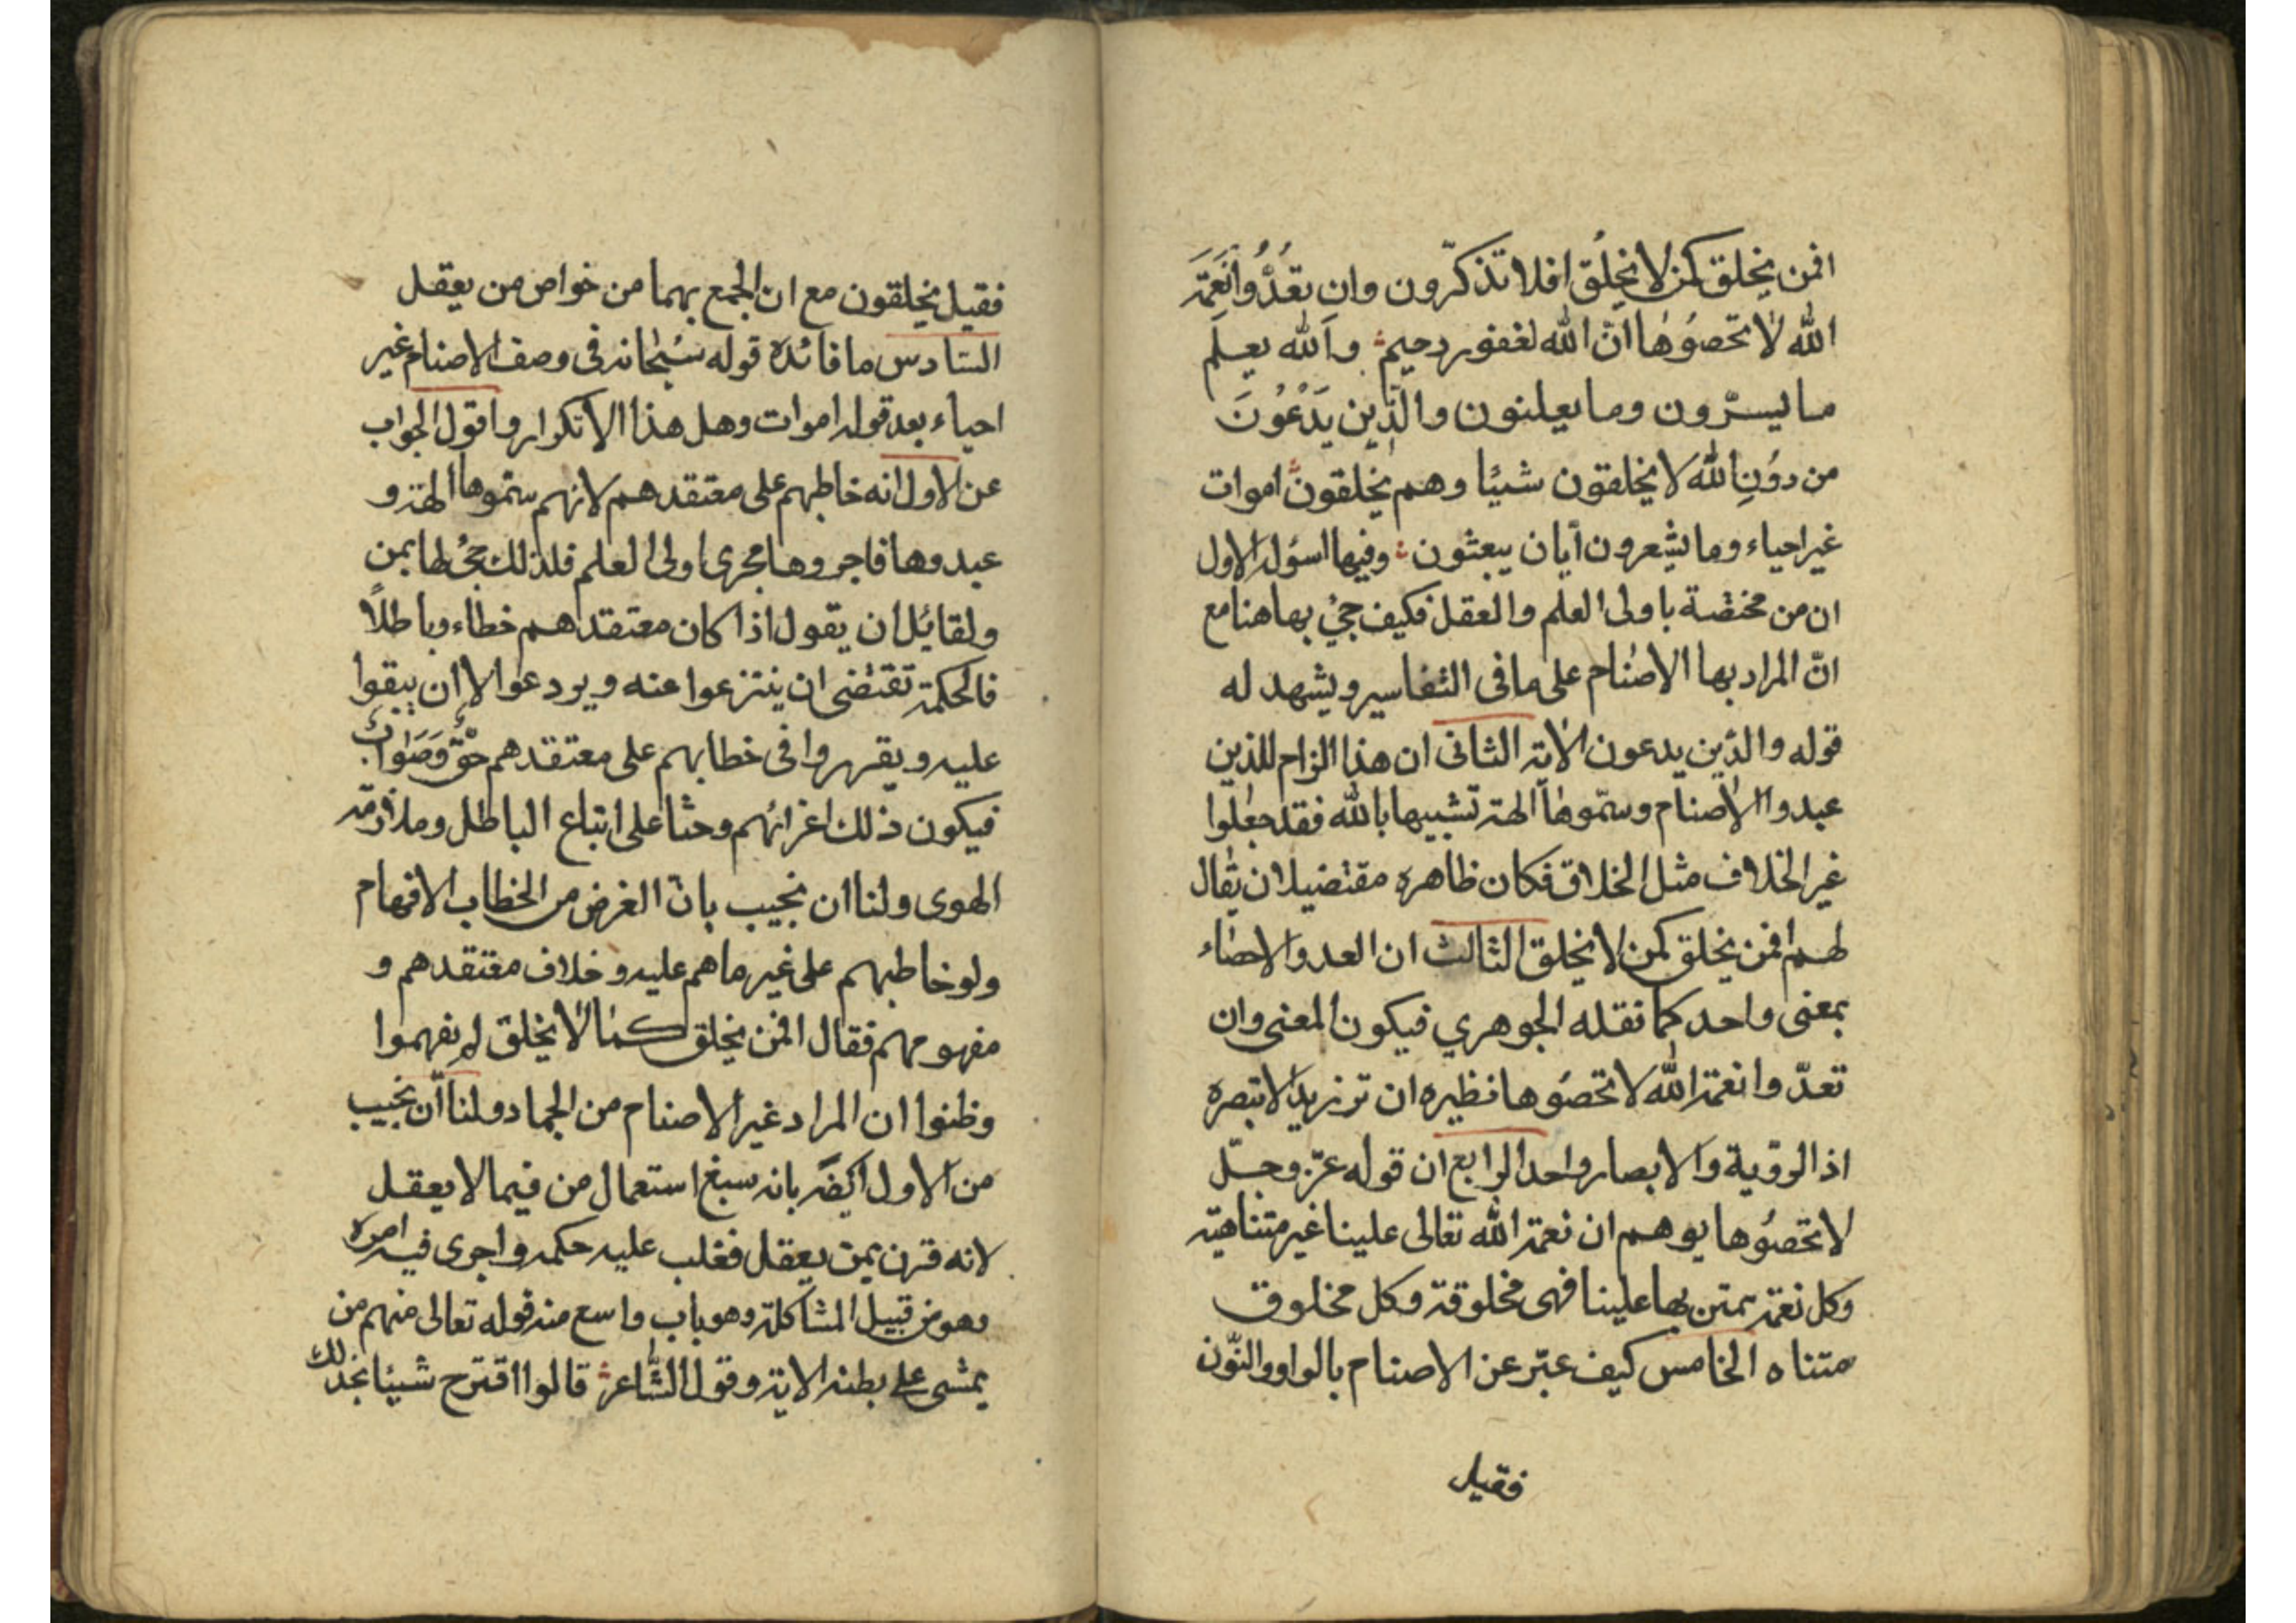 افمن يخلق كمن لا يخلق افلا تذكّرون وان تعُدُّوا نعمَة
الله لا تحصُوها انّ الله لغفور رحيم والله يعلم
ما يسرّون وما يعلنون والذين يَدْعُونَ
من دُونِ الله لا يخلقون شيئا وهم يخلقون اموات
غير احياء وما يشعرون أيان يبعثون وفيها اسؤلة الاول
ان من مختصة باولى العلم والعقل فكيف جئ بها هنا مع
انّ المراد بها الاصنام على ما فى التفاسير ويشهد له
قوله والذين يدعون الآية الثانى ان هذا الزام للذين
عبدوا الاصنام وسمّوها آلهة تشبيها بالله فقد جعلوا
غير الخلاق مثل الخلاق فكان ظاهره مقتضيا لان يقال
لهم افمن يخلق كمن لا يخلق الثالث ان العد والاحصاء
بمعنى واحد كما نقله الجوهري فيكون المعنى وان
تعدّوا نعمة الله لا تحصُوها نظيره ان تر زيدا لا تبصره
اذ الرؤية والابصار واحد الرابع ان قوله عزّ وجلّ
لا تحصُوها يوهم ان نعمة الله تعالى علينا غير متناهية
وكل نعمة يمتن بها علينا فهى مخلوقة وكل مخلوق
متناه الخامس كيف عبّر عن الاصنام بالواو والنّون
فقيل
فقيل يخلقون مع ان الجمع بهما من خواص من يعقل
السّادس ما فائدة قوله سُبحانه فى وصف الاصنام غير
احياء بعد قوله اموات وهل هذا الا تكرار واقول الجواب
عن الاول انه خاطبهم على معتقدهم لانهم سمّوها آلهة و
عبدوها فاجروها مجرى اولى العلم فلذلك جئ لها بمن
ولقائل ان يقول اذا كان معتقدهم خطاء وباطلًا
فالحكمة تقتضى ان ينتزعوا عنه ويردعوا لا ان يبقوا
عليه ويقرروا فى خطابهم على معتقدهم حق وصَواب
فيكون ذلك اغرائهم وحثا على اتباع الباطل وملازمة
الهوى ولنا ان نجيب بانّ الغرض من الخطاب الافهام
ولو خاطبهم على غير ما هم عليه وخلاف معتقدهم و
مفهومهم فقال افمن يخلق كما لا يخلق لم يفهموا
وظنوا ان المراد غير الاصنام من الجماد ولنا ان نجيب
من الاول ايضًا بانه سبغ استعمال من فيما لا يعقل
لانه قرن بمن يعقل فغلب عليه حكمه واجرى فيه امره
وهو من قبيل المشاكلة وهو باب واسع منه قوله تعالى منهم من
يمشى على بطنه الاية وقول الشّاعر قالوا اقترح شيئا نجد لك